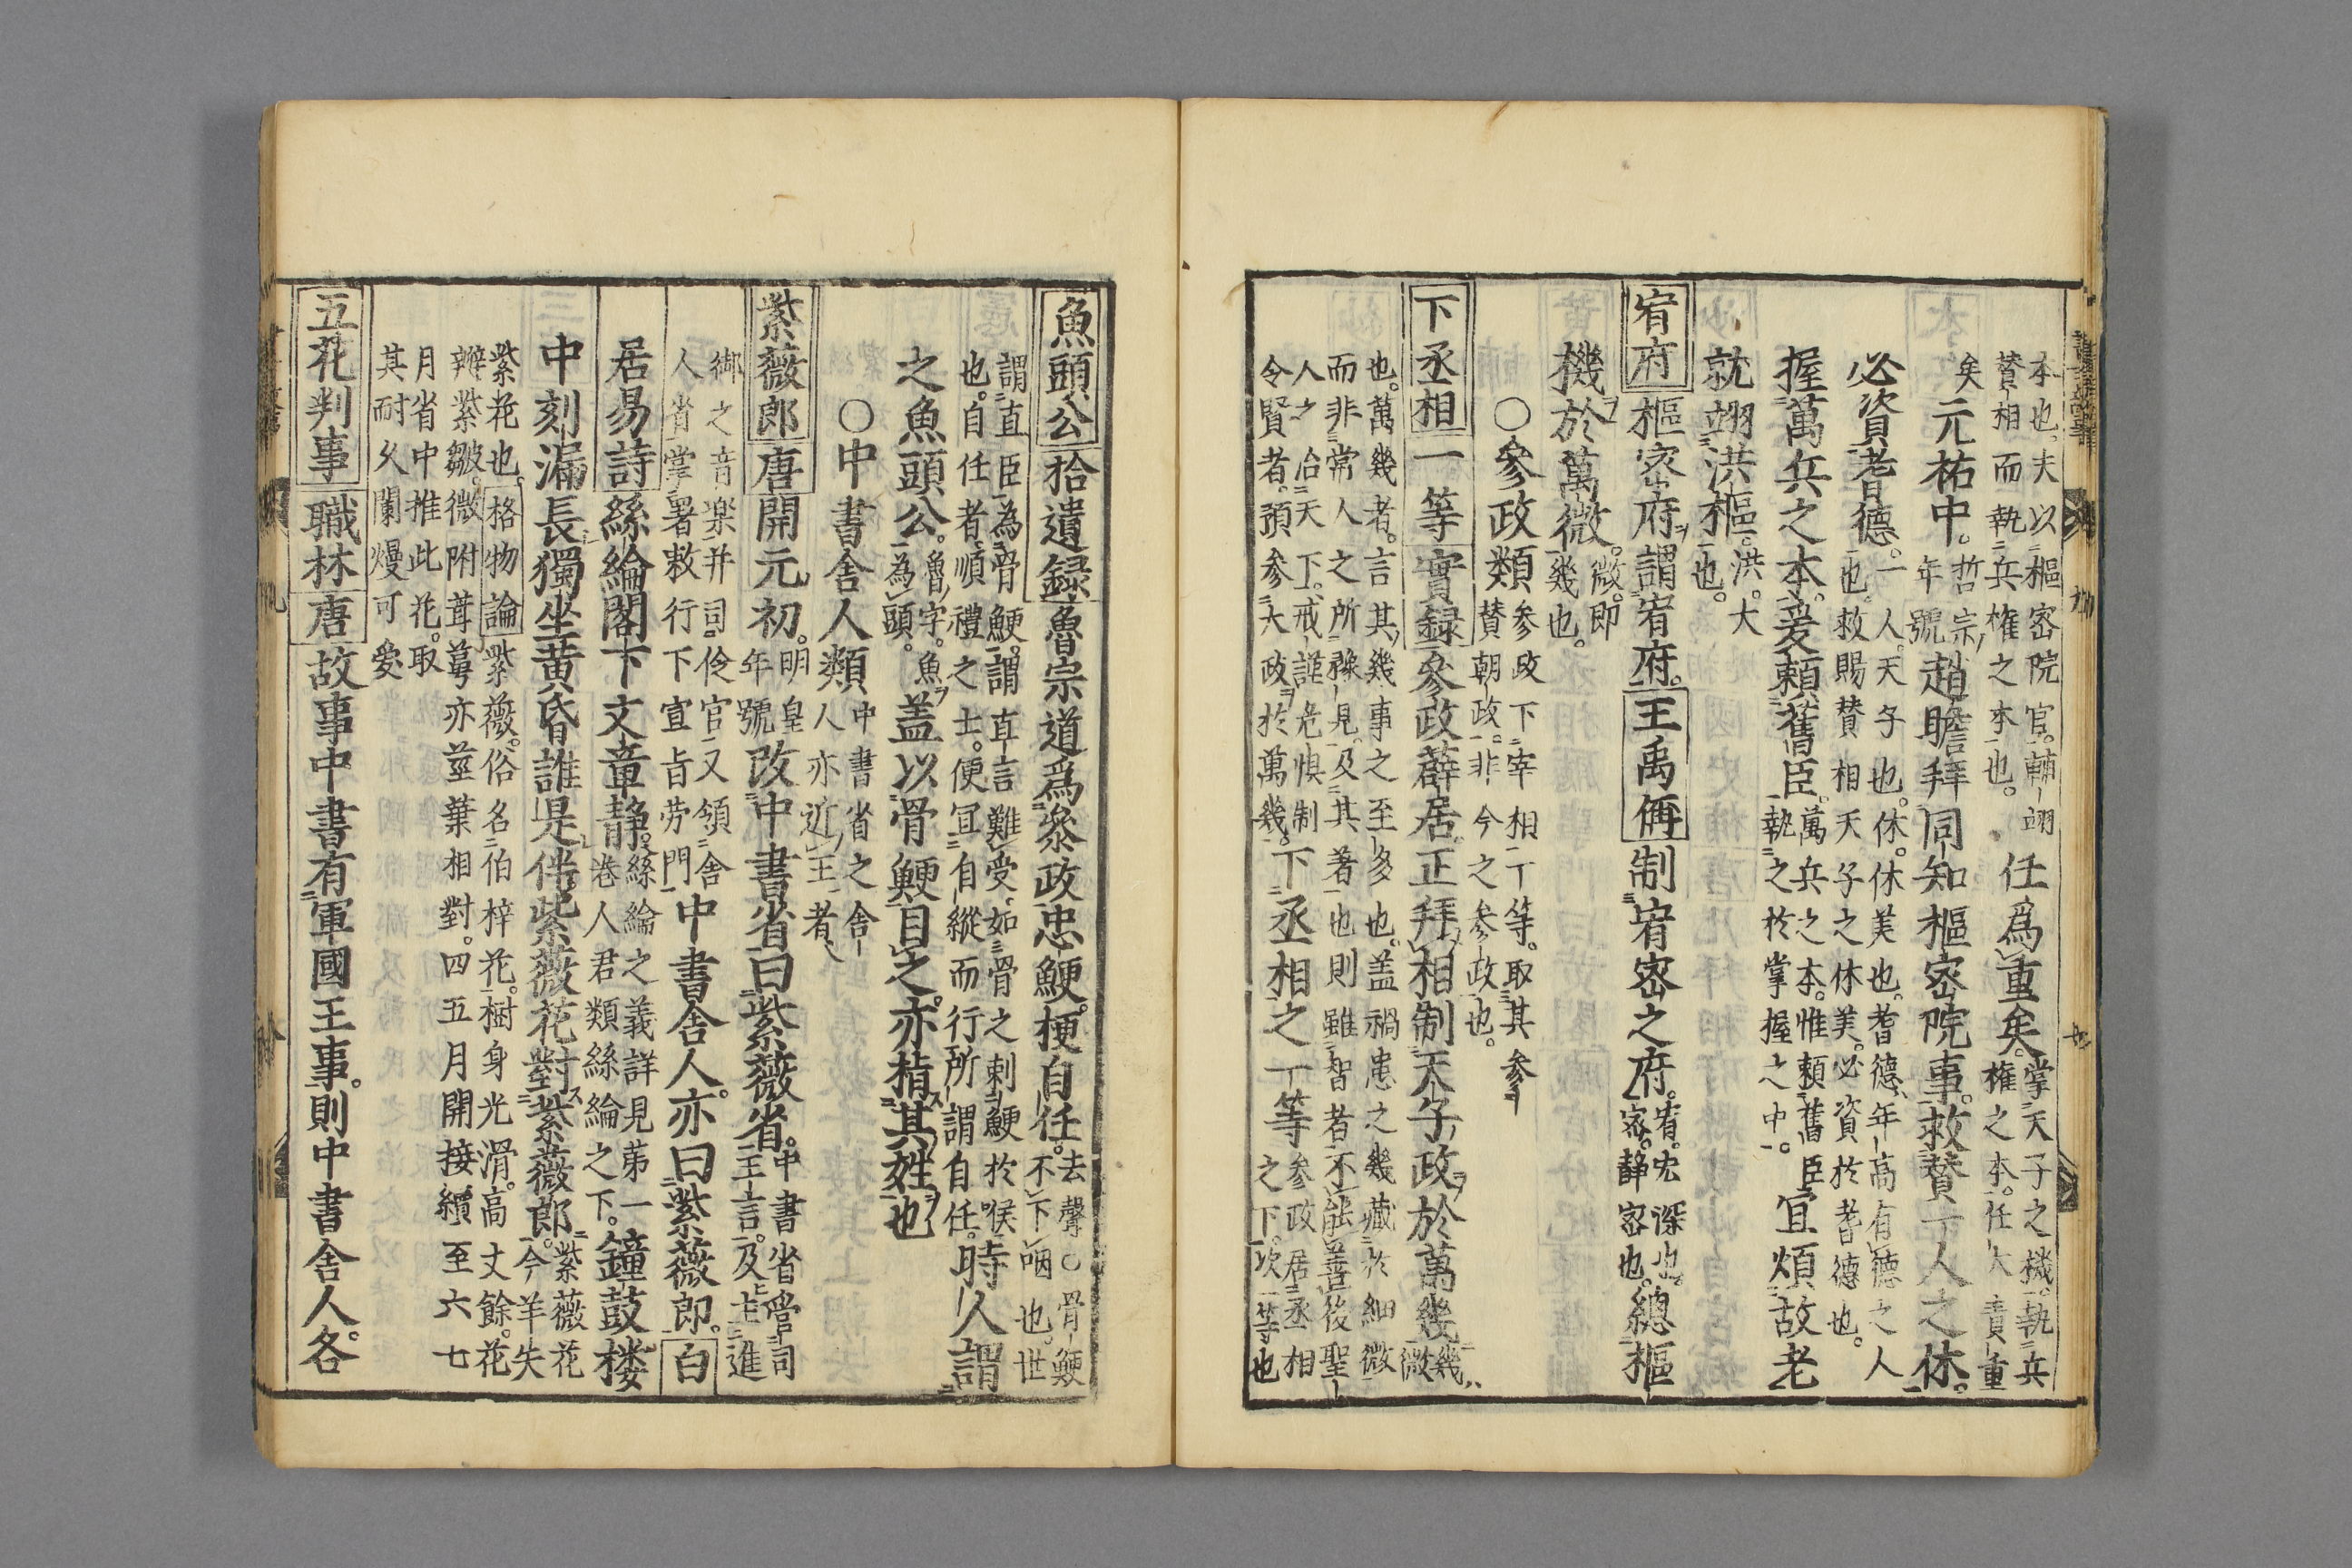 本也夫以樞密院官輔翊
賛相而執兵権之本也
任爲重矣
掌天子之機執兵
権之本任大責重
矣
元祐中
哲宗
年號
趙瞻拜同知樞密院事敕賛一人之休
必資耆德
一人天子也休休美也耆德年高有德之人
也敕賜賛相天子之休美必資於耆德也
握萬兵之本爰頼舊臣
萬兵之本惟頼舊臣
執之於掌握之中
宜煩故老
就翊洪樞
洪大
也
宥府樞密府謂宥府王禹偁制宥密之府
宥宏深也
密静密也
總樞
機於萬微
微即
幾也
○參政類
参政下宰相一等取其参
賛朝政非今之参政也
下丞相一等實録參政薜居正拜相制天子政於萬幾
幾
微
也萬幾者言其幾事之至多也盖禍患之幾藏於細微
而非常人之所豫見及其著也則雖智者不能善後聖
人之治天下戒謹危惧制
令賢者預参大政於萬幾
下丞相之一等
参政居丞相
之下次一等也
魚頭公拾遺録魯宗道爲參政忠鯁梗自任
去聲○骨鯁
不下咽也世
謂直臣為骨鯁謂直言難受如骨之刺鯁於喉
也自任者順禮之士便冝自縱而行所謂自任
時人謂
之魚頭公
魯字魚
為頭
盖以骨鯁目之亦指其姓也
○中書舎人類
中書省之舎
人亦近王者
紫薇郎唐開元初
明皇
年號
改中書省曰紫薇省
中書省管司
王言及主進
御之音楽并司伶官又領舎
人省掌署敕行下宣旨労門
中書舎人亦曰紫薇郎白
居易詩絲綸閣下文章静
絲綸之義詳見第一
巻人君類絲綸之下
鐘鼓楼
中刻漏長獨坐黄昏誰是伴紫薇花對紫薇郎
紫薇花
今羊失
紫花也格物論紫薇俗名伯梓花樹身光滑高丈餘花
瓣紫皺微附茸萼亦莖葉相對四五月開接續至六七
月省中推此花取
其耐久闌熳可愛
五花判事職林唐故事中書有軍國王事則中書舎人各